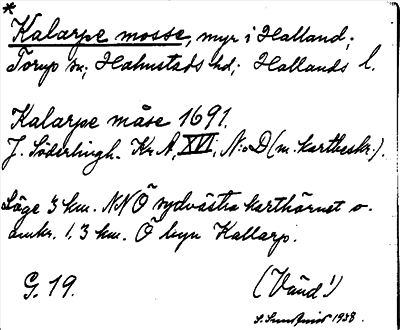 *
Kalarpe mosse, myr i Halland;
Torup sn; Halmstads hd; Hallands l.
Kalarpe måse 1691.
J. Söderlingh. Kr. A, XVI, N:o D (m. kartbeskr.).
Läge 3 km. NNÖ sydvästra karthörnet o.
omkr. 1,3 km. Ö byn Kallarp.
G. 19.
(Vänd!)
1938